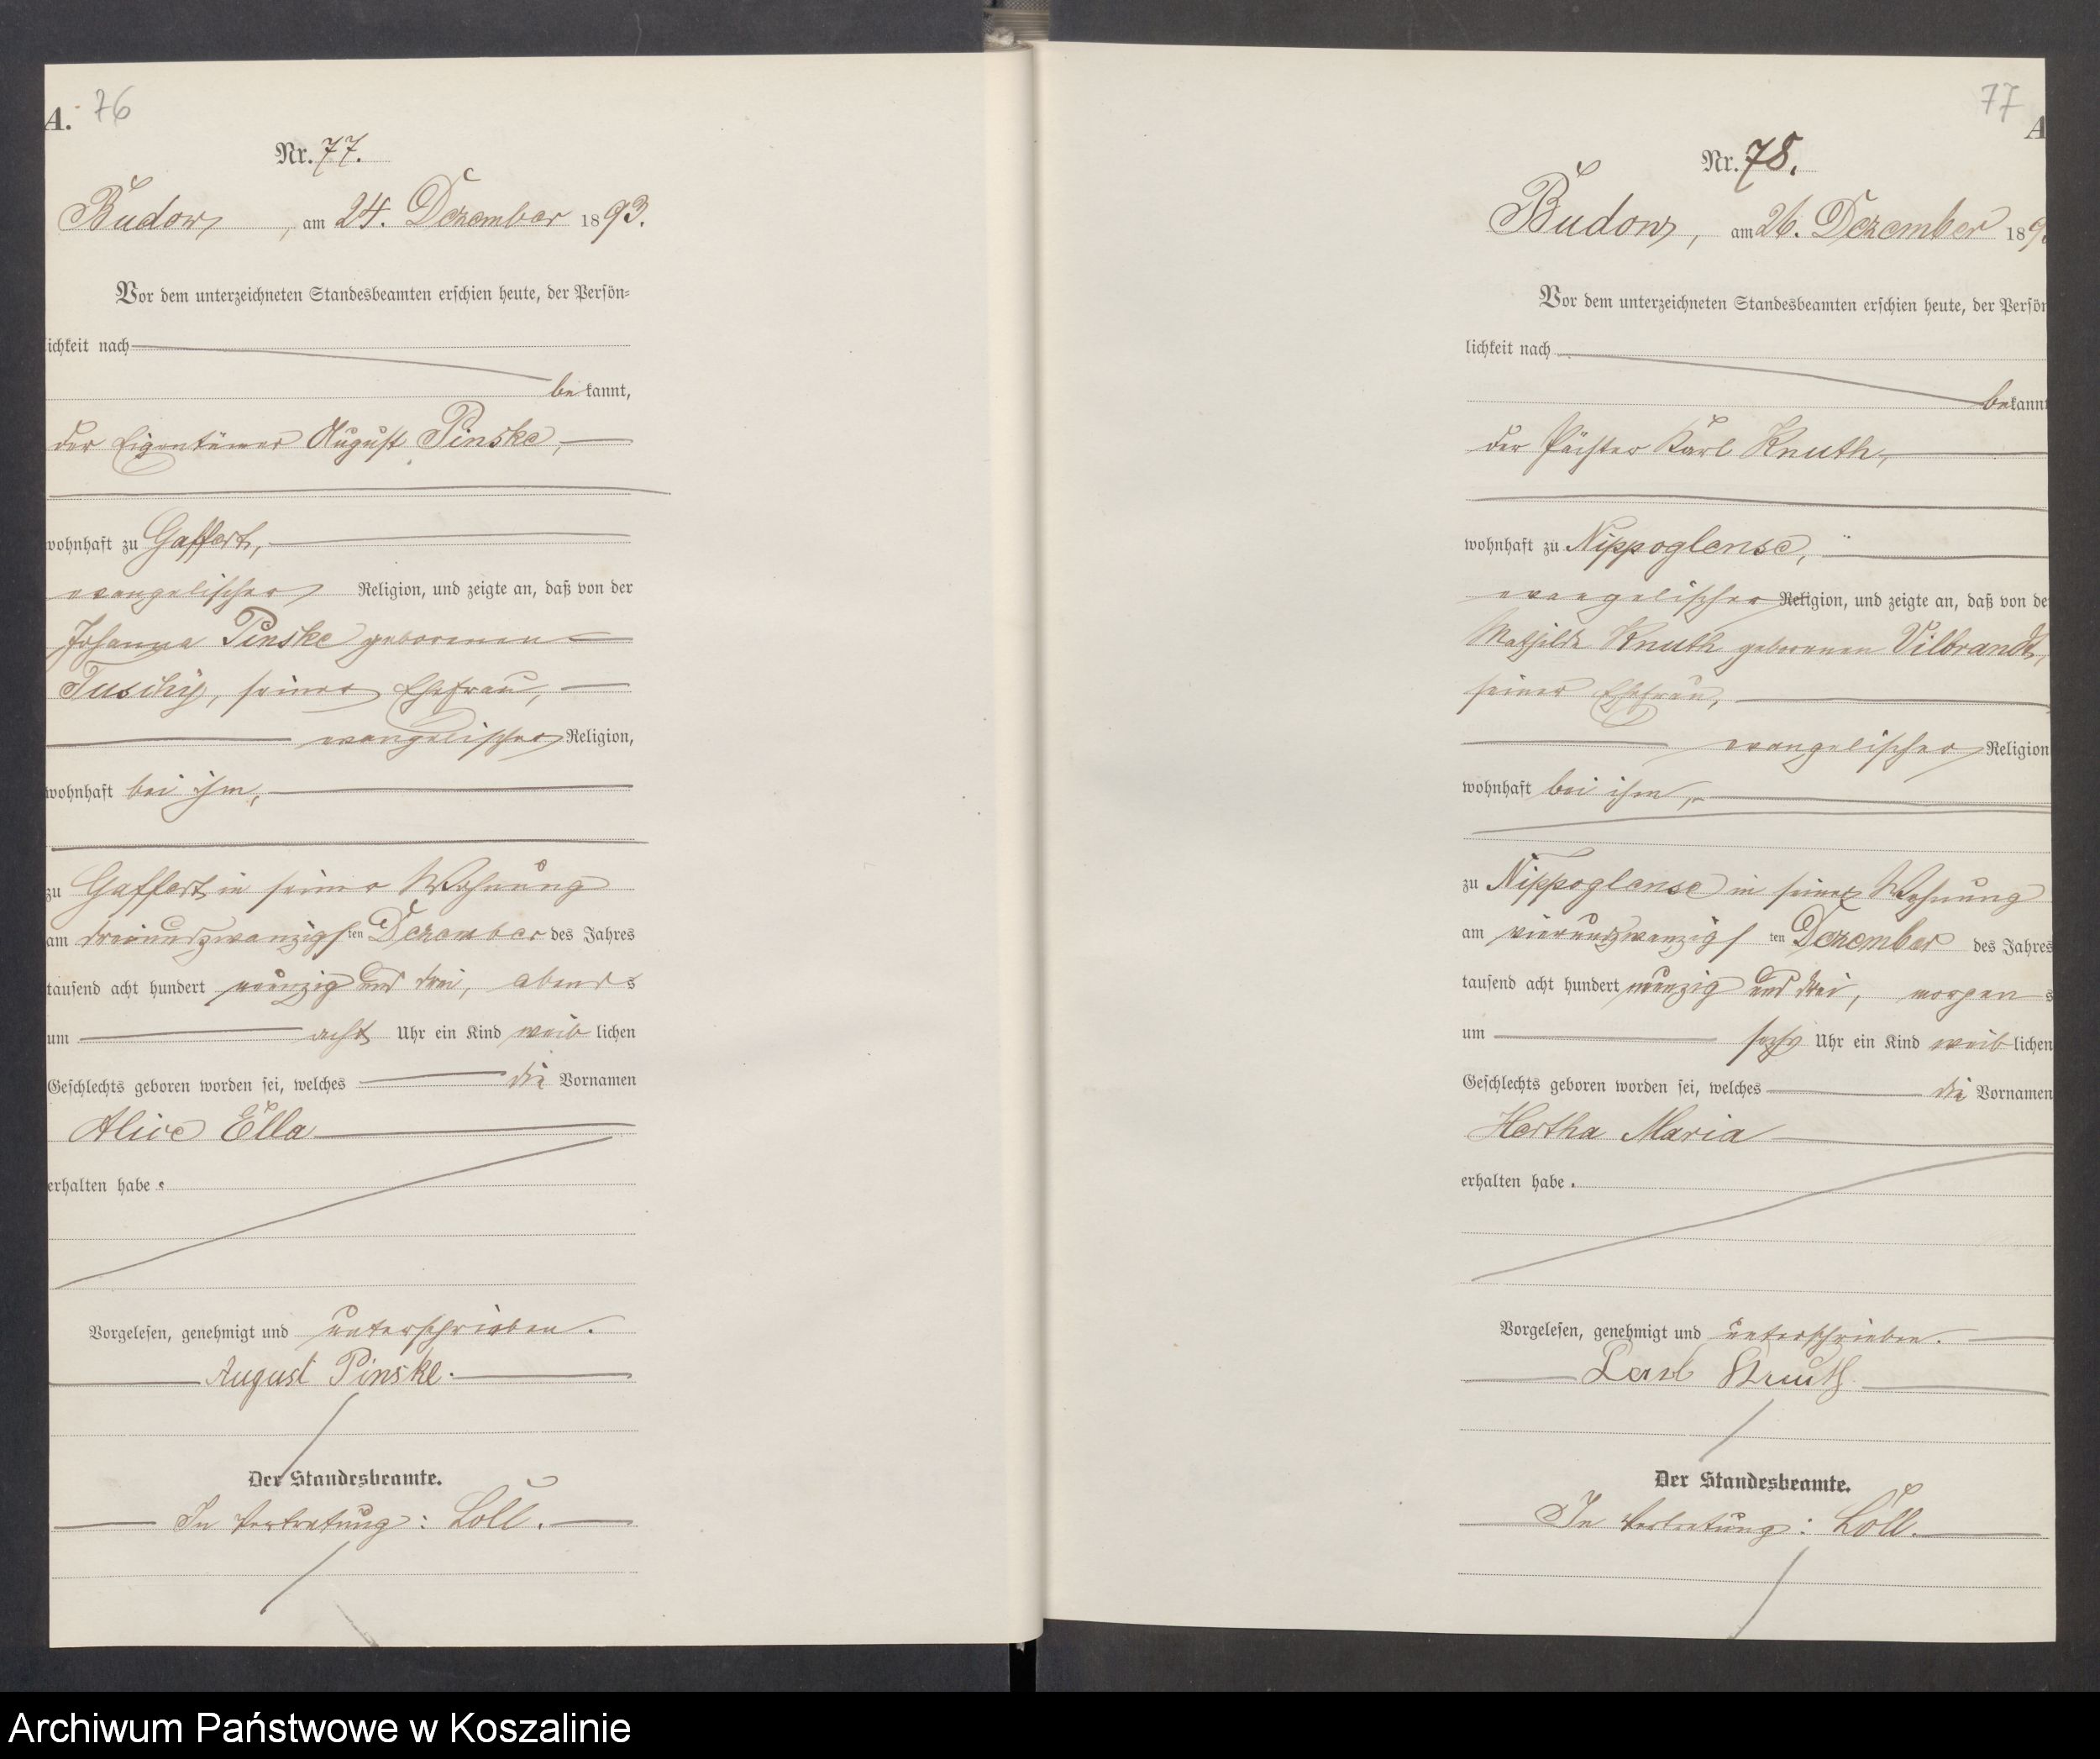 A. 76
Nr. 77.
Budow, am 24. Dezember 1893.
Vor dem unterzeichneten Standesbeamten erschien heute, der Persön-
lichkeit nach
be kannt,
der Eigentümer August Pinske,
wohnhaft zu Gaffert,
evangelischer Religion, und zeigte an, daß von der
Johanna Pinske geborenen
Tuschy, seiner Ehefrau,
evangelischer Religion,
wohnhaft bei ihm,
zu Gaffert in seiner Wohnung
am dreiundzwanzigsten Dezember des Jahres
tausend acht hundert neunzig und drei, abends
um acht Uhr ein Kind weiblichen
Geschlechts geboren worden sei, welches die Vornamen
Alice Ella
erhalten habe.
Vorgelesen, genehmigt und unterschrieben.
August Pinske.
Der Standesbeamte.
In Vertretung: Löll.
77
A
Nr. 78.
Budow, am 26. Dezember 189
Vor dem unterzeichneten Standesbeamten erschien heute, der Persön
lichkeit nach
bekannt
der Pächter Karl Knuth,
wohnhaft zu Nippoglense,
evangelischer Religion, und zeigte an, daß von de
Mathilde Knuth geborenen Vilbrandt,
seiner Ehefrau,
evangelischer Religion
wohnhaft bei ihm,
zu Nippoglense in seiner Wohnung
am vierundzwanzigsten Dezember des Jahres
tausend acht hundert neunzig und drei, morgens
um sechs Uhr ein Kind weiblichen
Geschlechts geboren worden sei, welches die Vornamen
Hertha Maria
erhalten habe.
Vorgelesen, genehmigt und unterschrieben.
Karl Knuth
Der Standesbeamte.
In Vertretung: Löll.
Archiwum Państwowe w Koszalinie